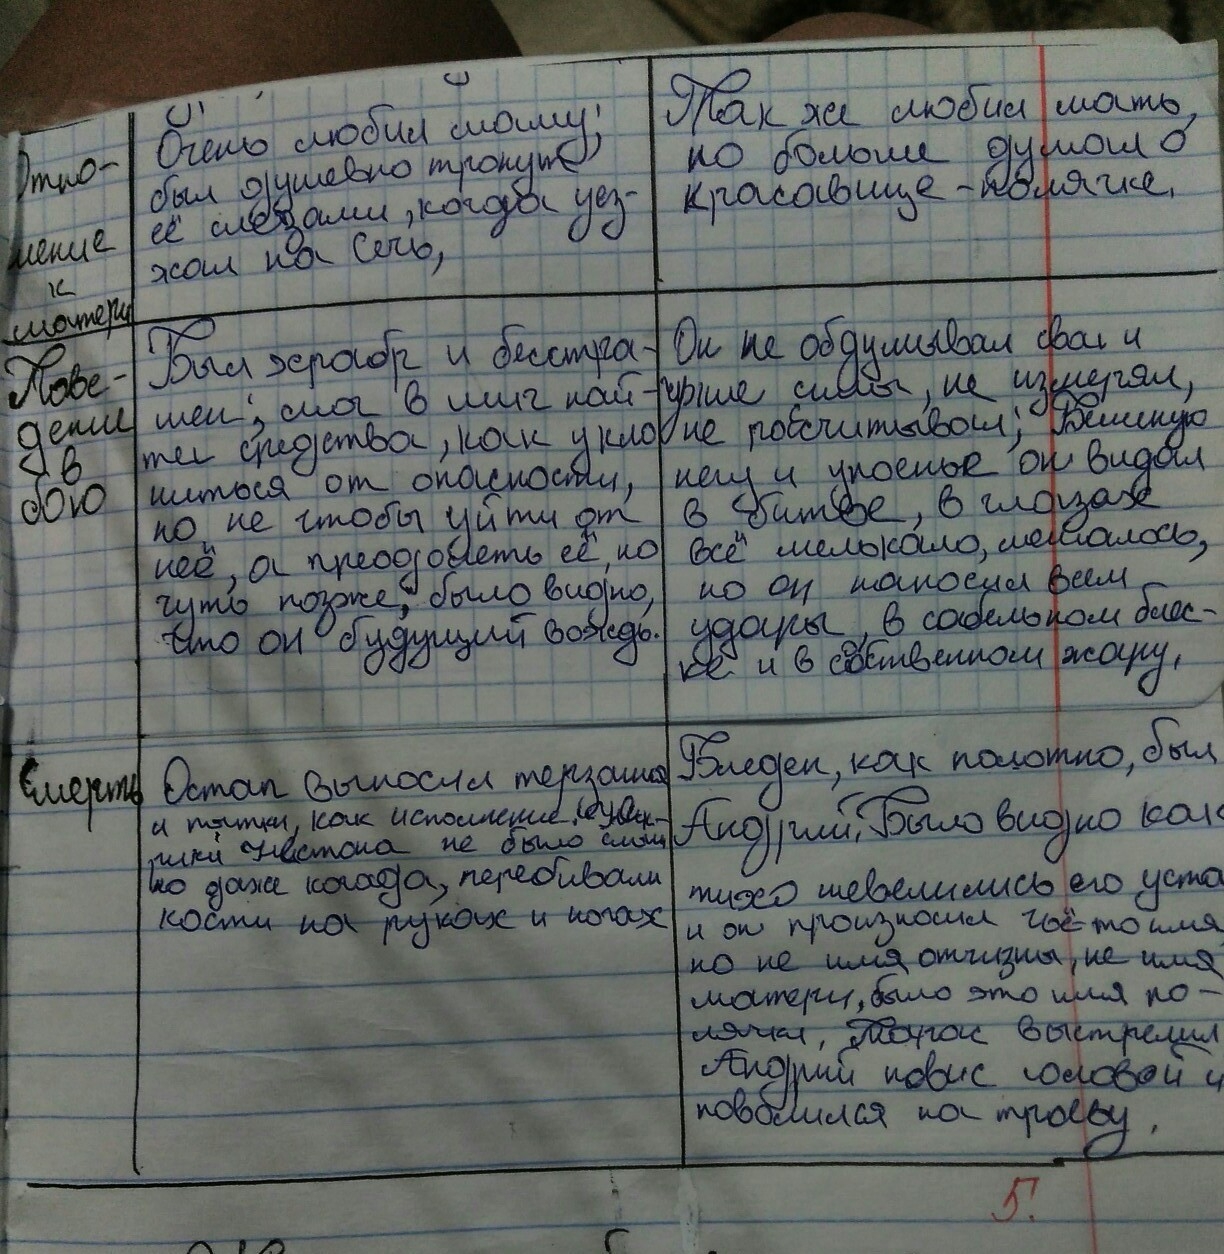 Отно-
шение
к
матери
Очень любил маму;
был душевно тронут
её слезами, когда уез-
жал на Сечь,
Так же любил мать,
но больше думал о
красавице - полячке.
Пове-
дение
в
бою
Был храбр и бесстра-
шен; мог в миг най-
ти средства, как укло
ниться от опасности,
но не чтобы уйти от
неё, а преодолеть её, но
чуть позже, было видно,
что он будущий вождь.
Он не обдумывал свои и
чужие силы, не измерял,
не рассчитывал; Бешеную
негу и упоенье он видел
в битве, в глазах
всё мелькало, мешалось,
но он наносил всем
удары, в сабельном блес-
ке и в собственном жару,
Смерть
Остап выносил терзания
и пытки, как исполнение. Ни крик-
ни стона не было слыш
но даже когда, перебивали
кости на руках и ногах
Бледен, как полотно, был
Андрий, Было видно как
тихо шевелились его уста
и он произносил чьё-то имя
но не имя отчизны, не имя
матери, было это имя по-
лячки, Тарас выстрелил
Андрий повис головой и
повалился на траву.
5.